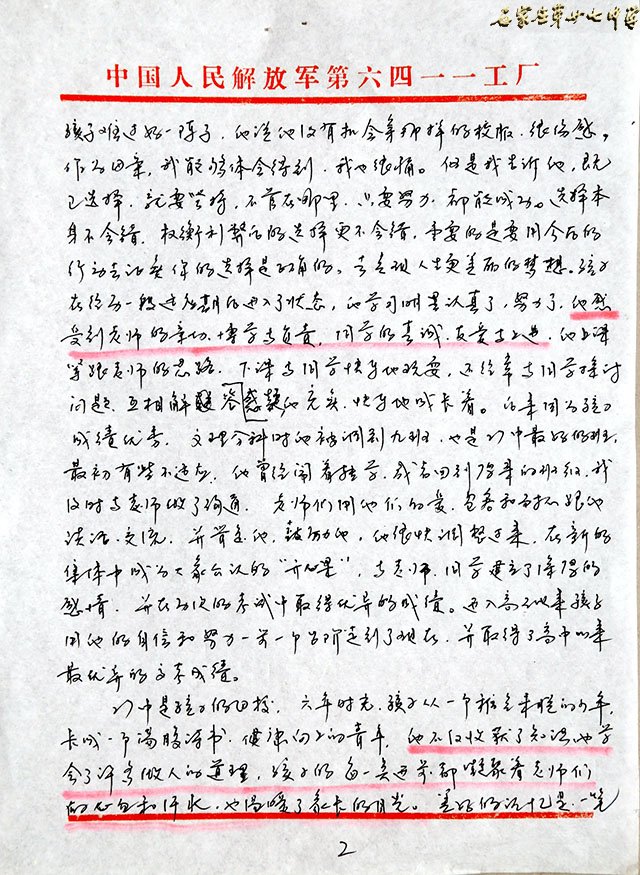 石家庄第廿七中学
中国人民解放军第六四一一工厂
孩子难过好一阵子，他说他没有机会拿那样的校服，很伤感。
作为母亲，我能够体会得到，我也很痛。但是我告诉他，既
已选择，就要坚持，不管在哪里，只要努力，都能成功。选择本
身不会错，权衡利弊后的选择更不会错，重要的是要用今后的
行动去证实你的选择是正确的。去实现人生更美丽的梦想。孩子
在经历一段适应期后进入了状态，他学习明显认真了，努力了，他感
受到老师的亲切、博学与负责，同学的真诚、友爱与上进，他上课
紧跟老师的思路，下课与同学快乐地玩耍，还经常与同学探讨
问题，互相解疑答惑，他充实、快乐地成长着。后来因为孩子
成绩优秀，文理分科时他被调到九班，也是二十七中最好的班，
最初有些不适应，他曾经闹着转学，或者回到原来的班级，我
及时与老师做了沟通，老师们用他们的爱，包容和
谈话、交流，并肯定他，鼓励他，他很快调整过来，在新的
集体中成为大家公认的“开心果”，与老师、同学建立了深厚的
感情，并在历次的考试中取得优异的成绩。进入高三以来孩子
用他的自信和努力一步一个台阶走到了现在，并取得了高中以来
最优异的高考成绩。
中是孩子的母校，六年时光，孩子从一个稚气未脱的少年，
长成一个满腹诗书、健康向上的青年，他不仅收获了知识也学
会了许多做人的道理，孩子的每一点进步都凝聚着老师们
的心血和汗水，也温暖了家长的目光。美好的记忆是一笔
2